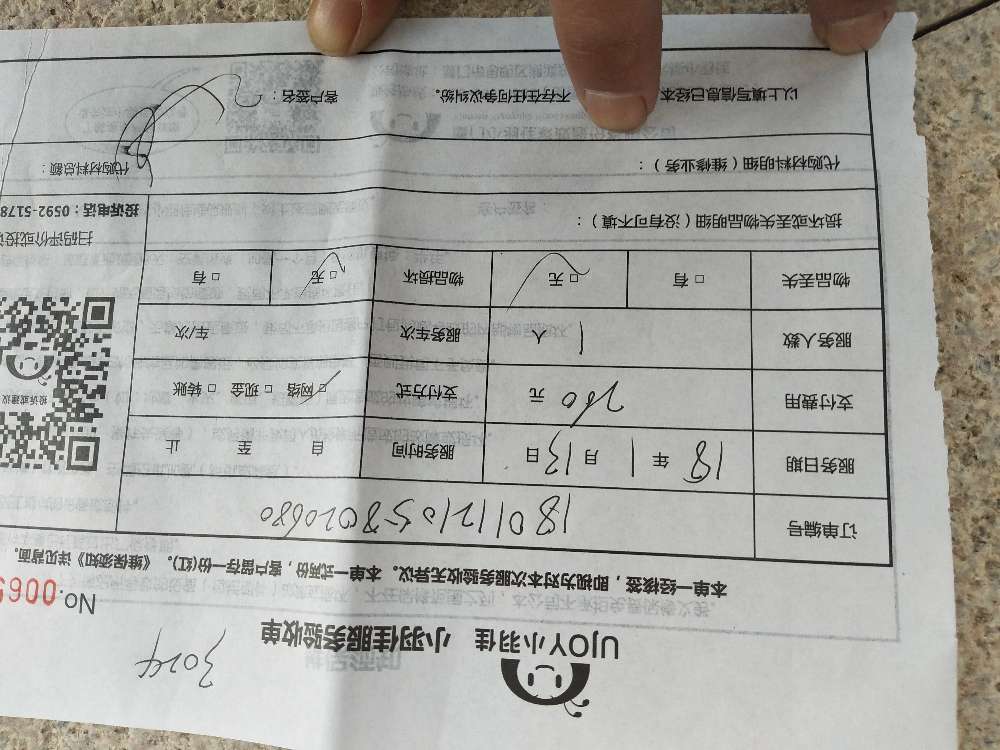 UJOY小羽佳 小羽佳服务验收单
3024
No.006
本单一经核签，即视为对本次服务验收无异议。本单一式两份，客户留存一份(红)。《维保须知》详见背面。
订单编号 180112105 020680
服务日期 18 年 1 月 13 日 服务时间 自 至 止
支付费用 260 元 支付方式 □ 网络 □ 现金 □ 转账
服务人数 1 人 服务车次 车/次
物品丢失 □ 有 □ 无 物品损坏 □ 无 □ 有
损坏或丢失物品明细（没有可不填）：
代购材料明细（维修业务）： 代购材料总额：
以上填写信息已经本 不存在任何争议纠纷。 客户签名：
投诉或建议
扫码评价或投
投诉电话：0592-5178